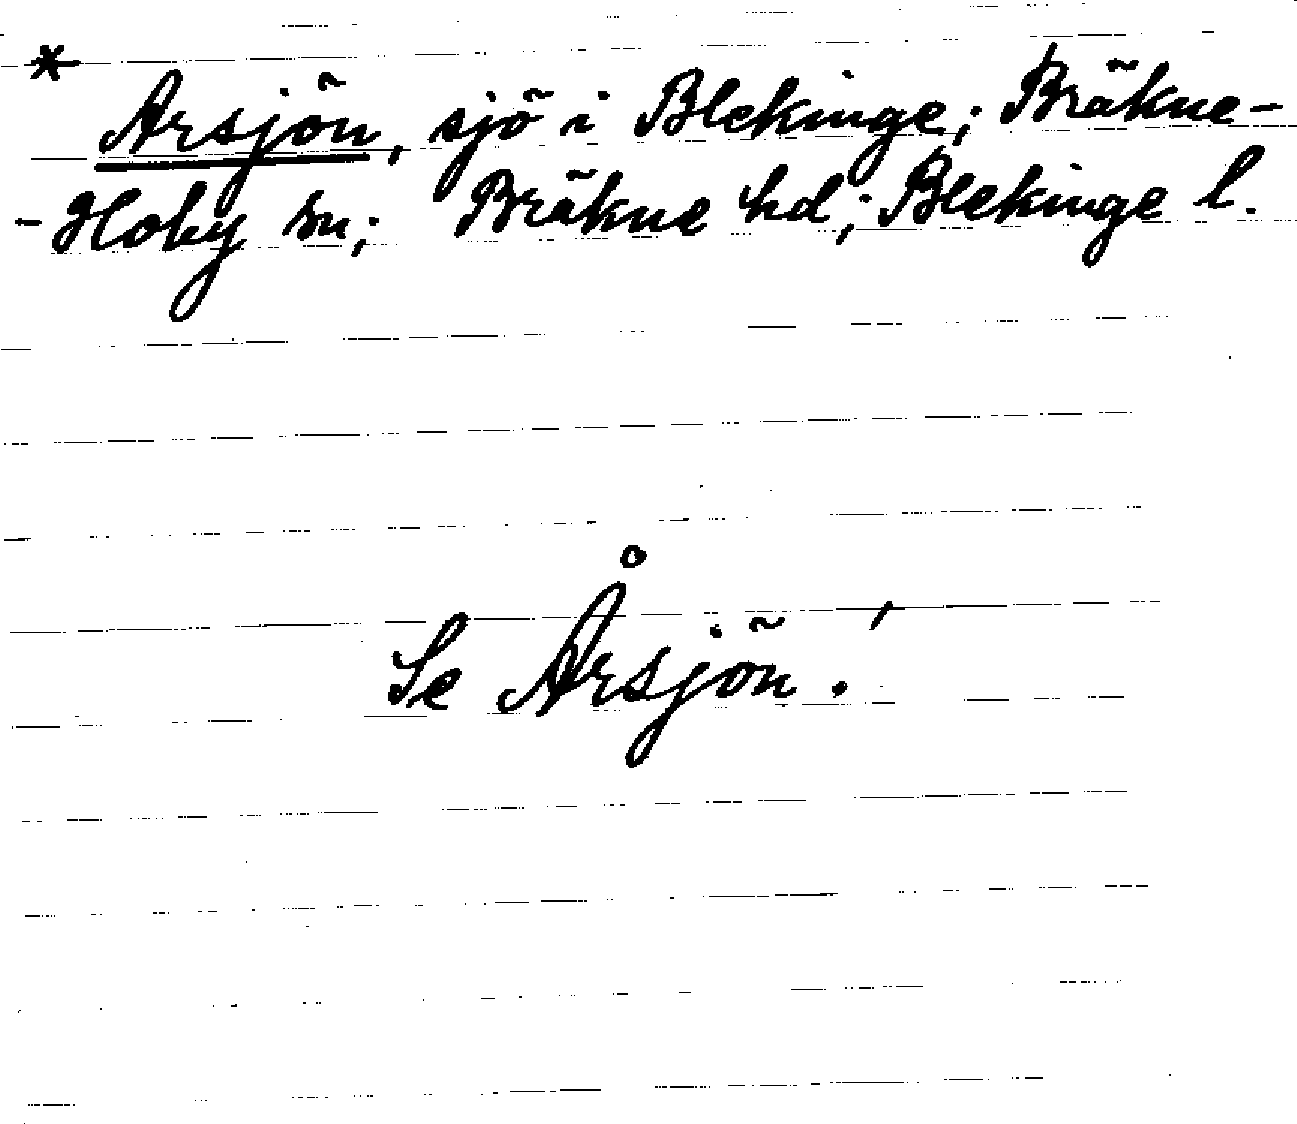 * Arsjön, sjö i Blekinge; Bräkne-
-Hoby sn; Bräkne hd; Blekinge l.
Se Årsjön.